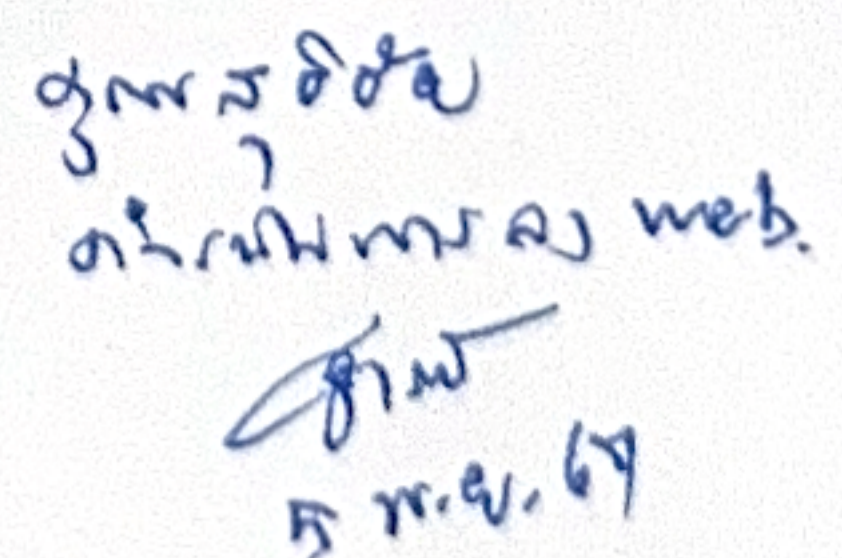 คุณสุธิชัย
ดำเนินการ ลง web.
5 พ.ย. 67